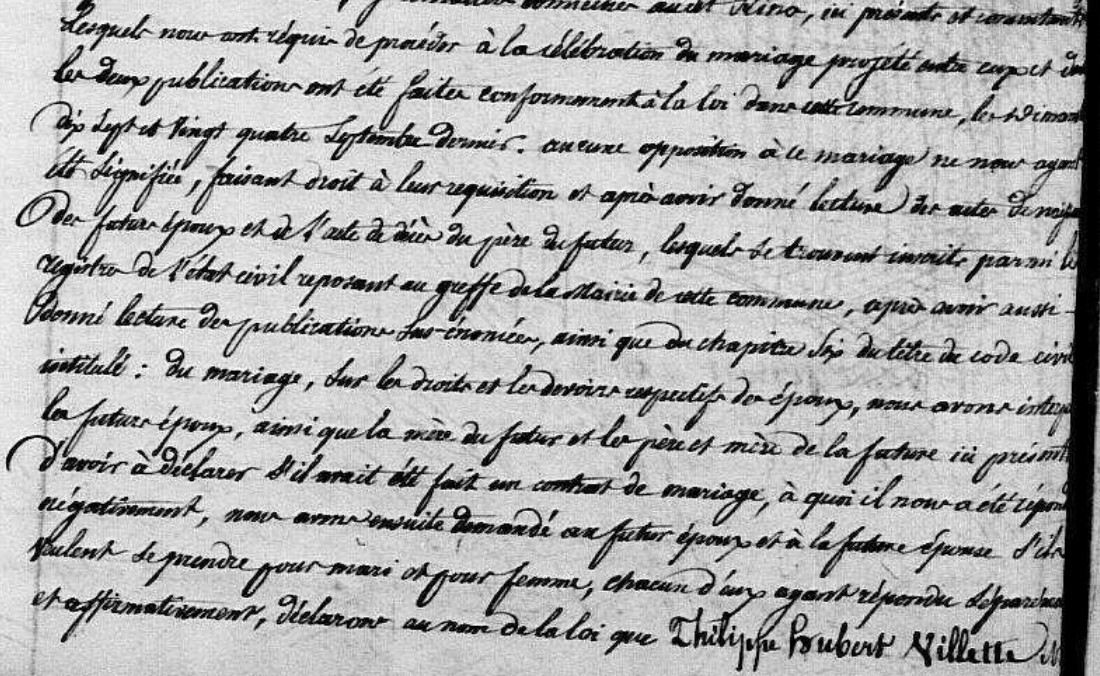 domiciliés audit Hino, ici présents et consentants
Lesquels nous ont réquis de procéder à la célébration du mariage projété entre eux et
les deux publications ont été faites conformement à la loi dans cette commune, les
dix sept et vingt quatre Septembre dernier. aucune opposition à ce mariage ne nous ayant
été signifiée, faisant droit à leur requisition et après avoir donné lecture des actes de
des futurs époux et de l'acte de décès du père du futur, lesquels se trouvent inscrits parmi
registres de l'état civil reposant au greffe de la Mairie de cette commune, après avoir aussi
donné lecture des publications sus-énoncées, ainsi que du chapitre Six du titre du code civil
intitulé : du mariage, sur les droits et les devoirs respectifs des époux, nous avons
les futurs époux, ainsi que la mère du futur et les père et mère de la future ici présents
d'avoir à déclarer s'il avait été fait un contrat de mariage, à quoi il nous a été
négativement, nous avons ensuite demandé au futur époux et à la future épouse s'ils
veulent se prendre pour mari et pour femme, chacun d'eux ayant répondu
et affirmativement, déclarons au nom de la loi que Philippe hubert Villette